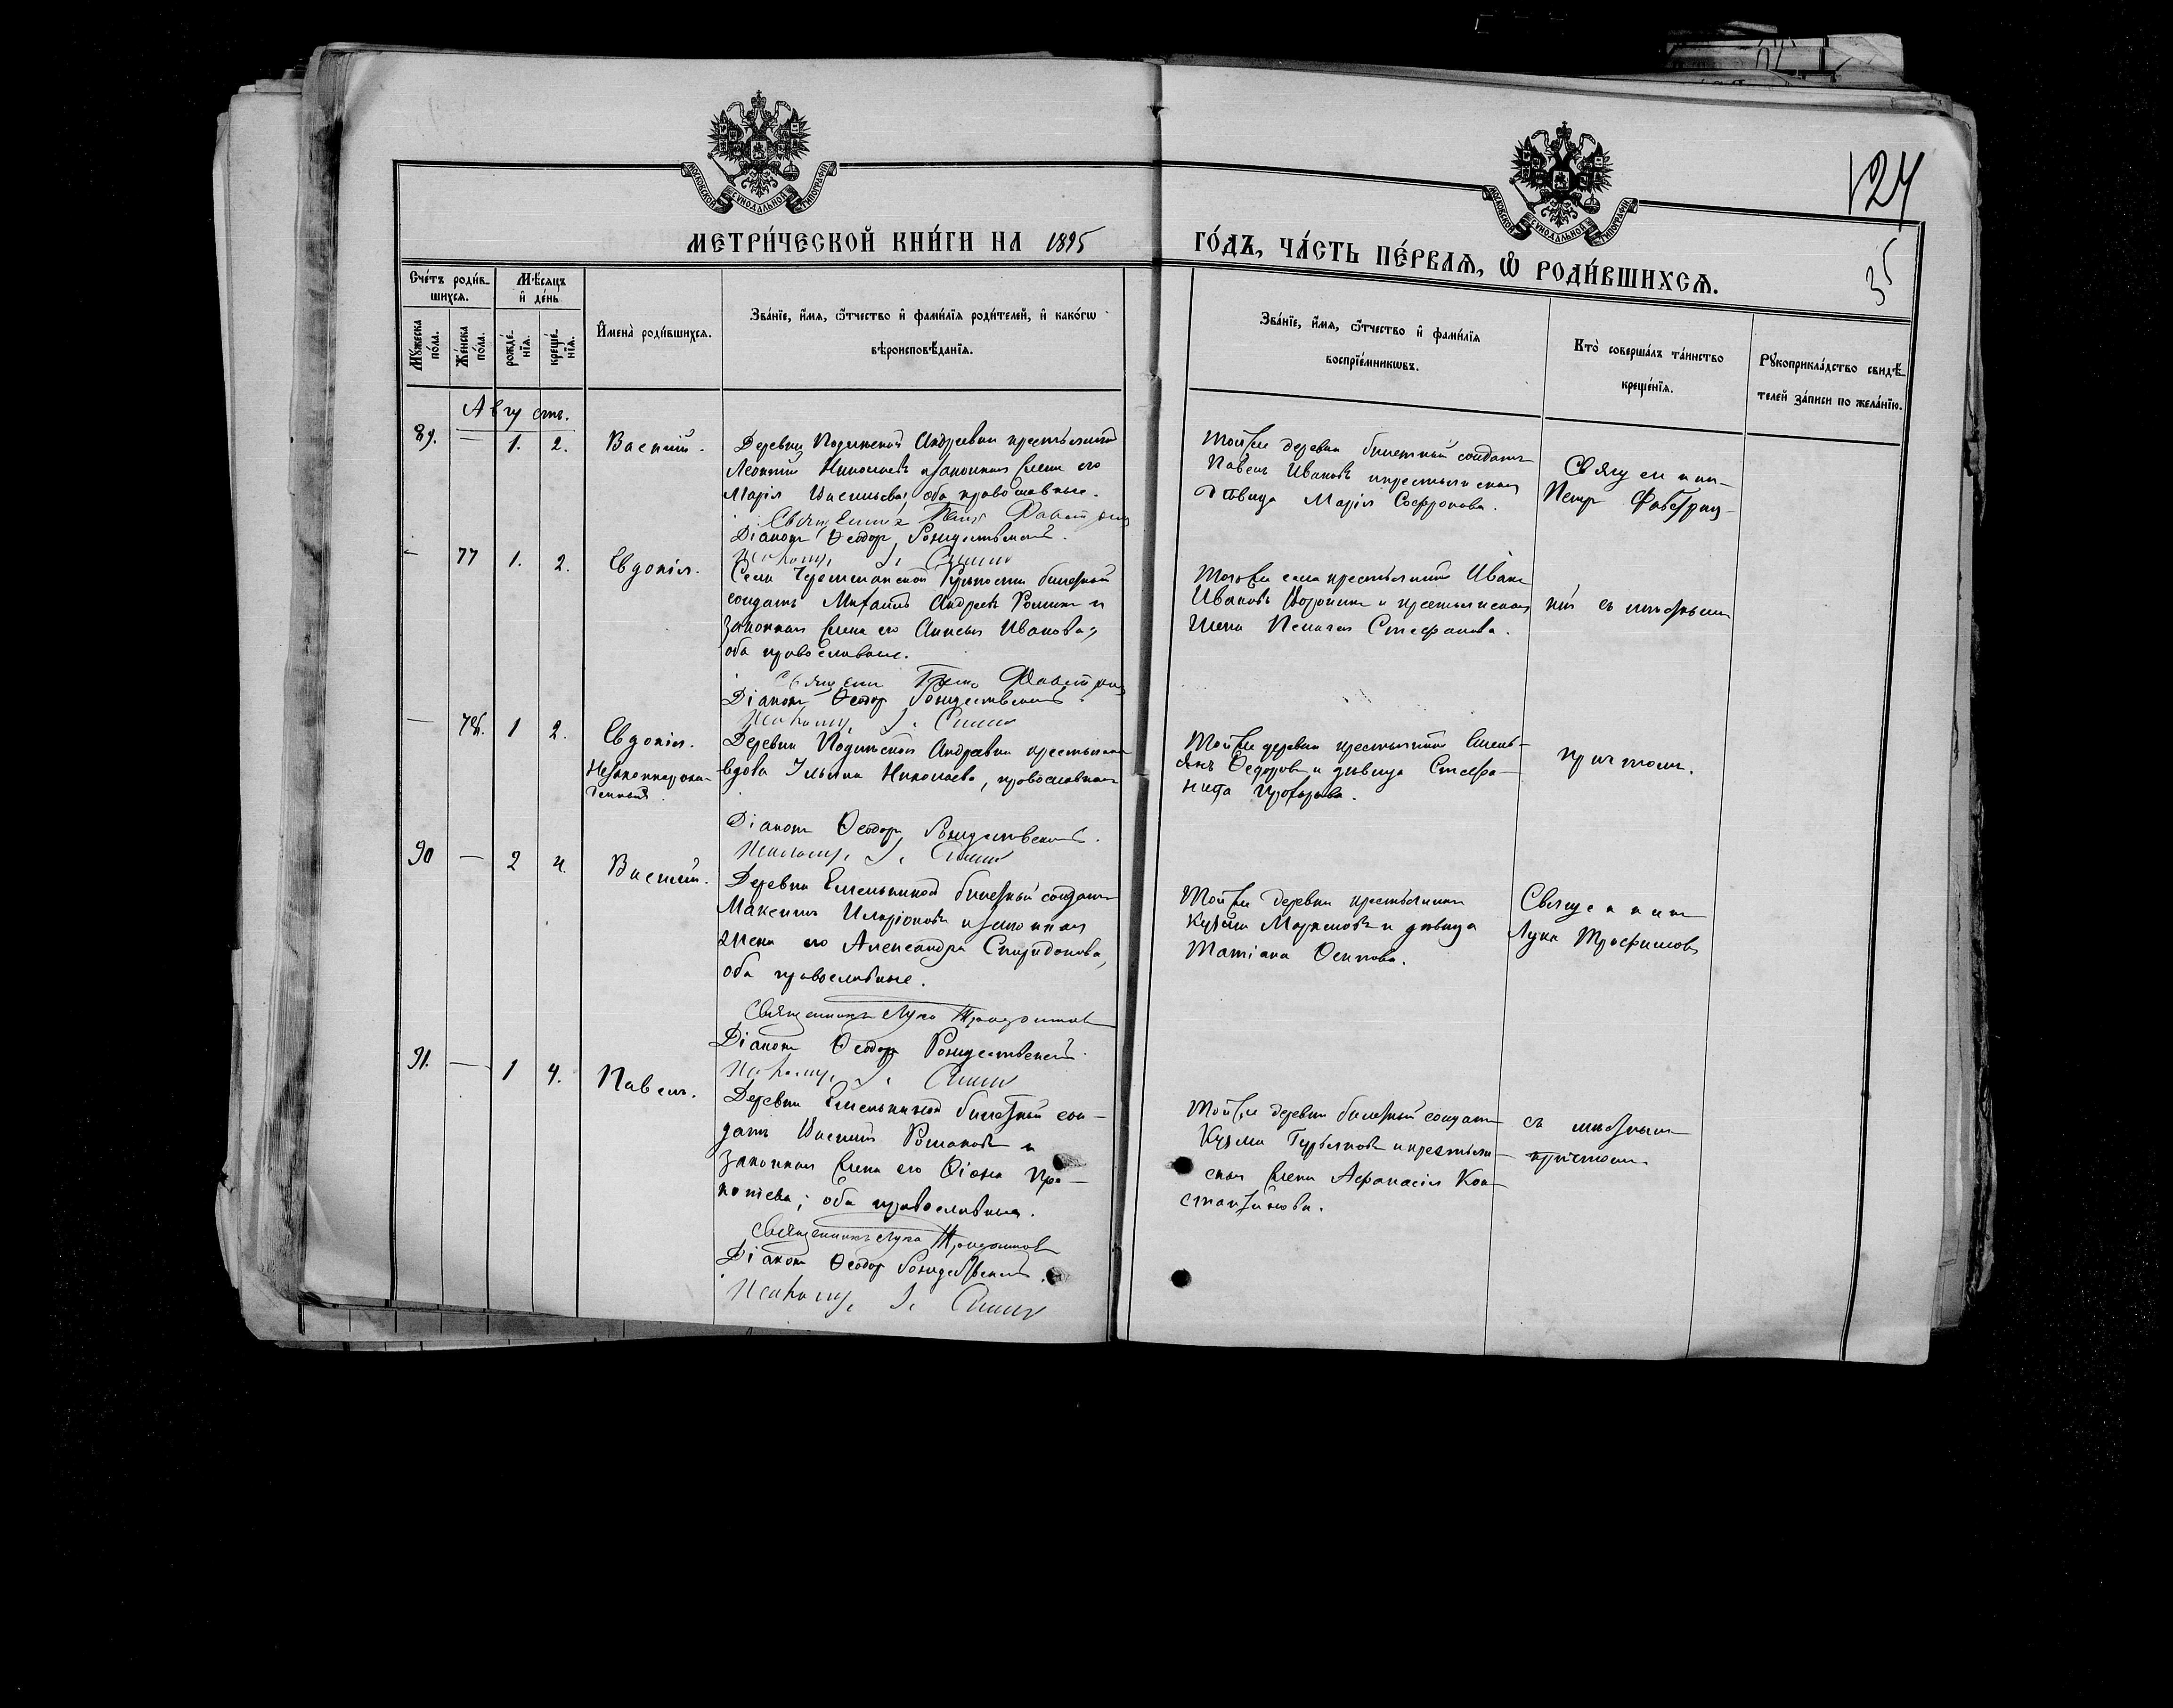 124
35
МОСКОВСКОЙ СѴНОДАЛЬНОЙ ТИПОГРАФІИ
МОСКОВСКОЙ СѴНОДАЛЬНОЙ ТИПОГРАФІИ
МЕТРИ́ЧЕСКОЙ КНИ́ГИ НА 1895
ГО́ДЪ, ЧА́СТЬ ПЕ́РВАѦ, Ѽ РОДИ́ВШИХСѦ.
Сче́тъ роди́в-
шихсѧ.
Мѣ́сѧцъ
и҆ де́нь
Мꙋ́жеска по́ла.
Же́нска по́ла.
рожде́нїѧ.
креще́нїѧ.
И҆мена̀ роди́вшихсѧ.
Зва́нїе, и҆́мѧ, ѻ҆́тчество и҆ фами́лїѧ роди́телей, и҆ како́гѡ
вѣроисповѣ́данїѧ.
Зва́нїе, и҆́мѧ, ѻ҆́тчество и҆ фами́лїѧ
воспрїе́мникѡвъ.
Кто̀ соверша́лъ та́инство
креще́нїѧ.
Рꙋкоприкла́дство свидѣ́-
телей за́писи по жела́нїю.
Августъ.
89. — 1. 2. Василій.
Деревни Андреевки крестьянинъ
Леонтій Николаевъ и законная жена его
Марія Васильева, оба православные.
Священникъ Петръ
Діаконъ Ѳеодоръ Рождественскій.
Псаломщ. І.
Той же деревни билетный солдатъ
Павелъ Ивановъ и крестьянская
дѣвица Марія Софронова.
Священникъ
Петръ
— 77 1. 2. Евдокія.
Села билетный
солдатъ Михаилъ Андреевъ и
законная жена его Ивановa,
оба православные.
Священникъ Петръ
Діаконъ Ѳеодоръ Рождественскій
Псаломщ. І.
Того же села крестьянинъ Иванъ
Ивановъ и крестьянская
жена Пелагея Стефанова.
съ мѣстнымъ
— 78. 1 2. Евдокія.
Незаконнорож-
денный.
Деревни Андреевки крестьянская
вдова Николаева, православная
Діаконъ Ѳеодоръ Рождественскій.
Псаломщ. І.
Той же деревни крестьянинъ Емель-
янъ Ѳедоровъ и дѣвица Стефа-
нида Прохорова.
причтомъ.
90 — 2 4. Василій.
Деревни билетный солдатъ
Максимъ Иларіоновъ и законная
жена его Александра Спиридонова,
оба православные.
Священникъ Лука Трофимовъ
Діаконъ Ѳеодоръ Рождественскій.
Псаломщ. І.
Той же деревни крестьянинъ
Кузьма и дѣвица
Татіана Осипова.
Священникъ
Лука Трофимовъ
91. — 1 4. Павелъ.
Деревни билетный сол-
датъ Василій Романовъ и
законная жена его Про-
копіева; оба православные.
Священникъ Лука Трофимовъ
Діаконъ Ѳеодоръ Рождественскій.
Псаломщ. І.
Той же деревни билетный солдатъ
Кузьма Гурьяновъ и крестьян-
ская жена Афанасія Кон-
стантинова.
съ мѣстнымъ
причтомъ.